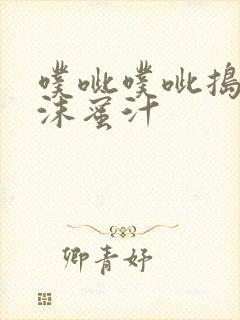 噗呲噗呲搗
沫蜜汁
卿青妤